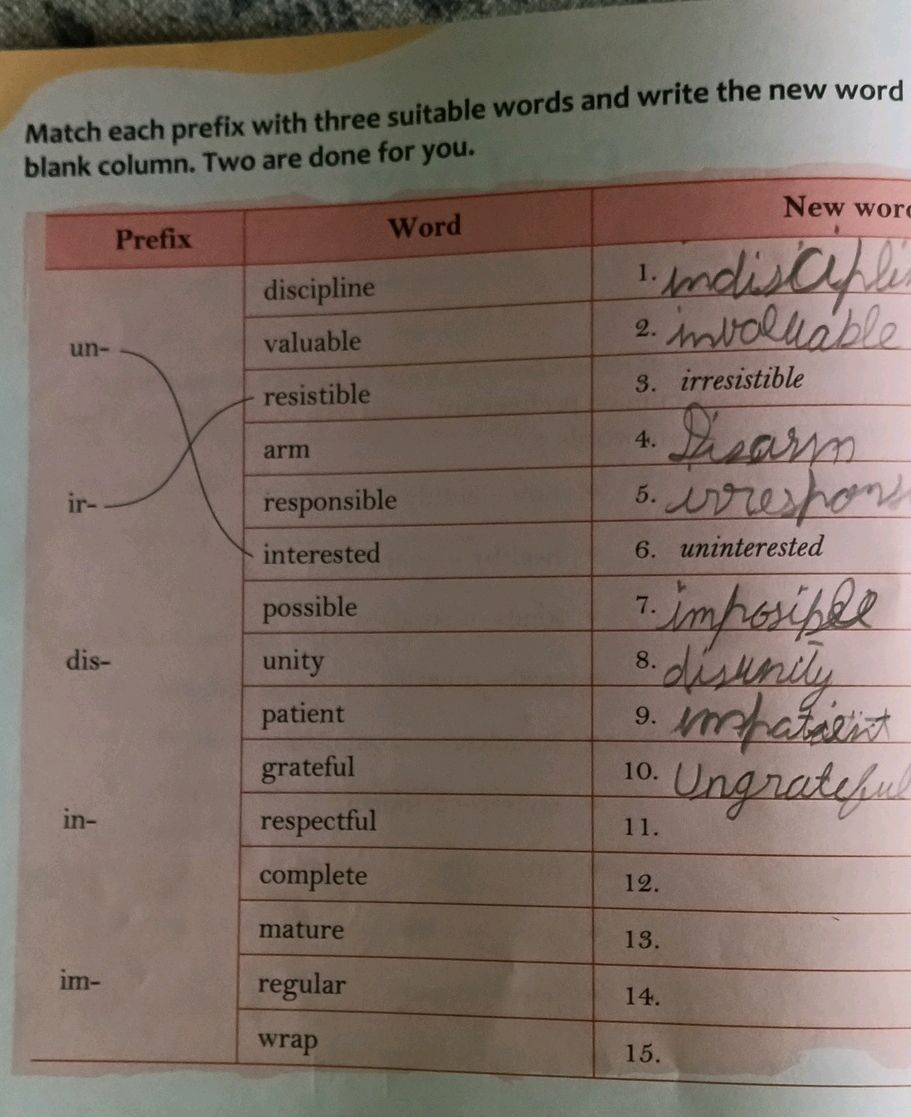 Match each prefix with three suitable words and write the new word
blank column. Two are done for you.
Prefix Word New wor
discipline 1. indiscipli
un- valuable 2. invaluable
resistible 3. irresistible
arm 4. Disarm
ir- responsible 5. irrespons
interested 6. uninterested
possible 7. imposible
dis- unity 8. disunity
patient 9. impatient
grateful 10. Ungrateful
in- respectful 11.
complete 12.
mature 13.
im- regular 14.
wrap 15.